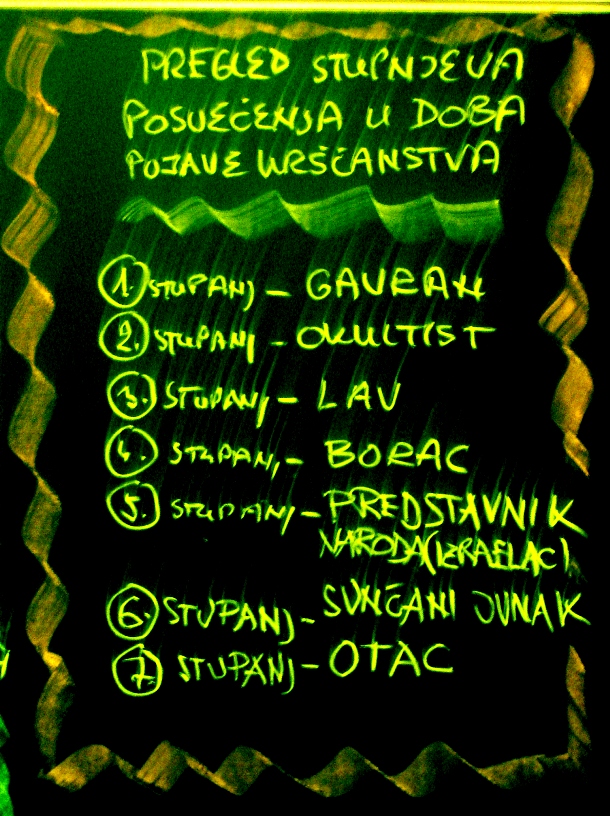 PREGLED STUPNJEVA
POSVEĆENJA U DOBA
POJAVE KRŠĆANSTVA
1. STUPANJ - GAVRAN
2. STUPANJ - OKULTIST
3. STUPANJ - LAV
4. STUPANJ - BORAC
5. STUPANJ - PREDSTAVNIK
NARODA (IZRAELAC)
6. STUPANJ - SUNČANI JUNAK
7. STUPANJ - OTAC